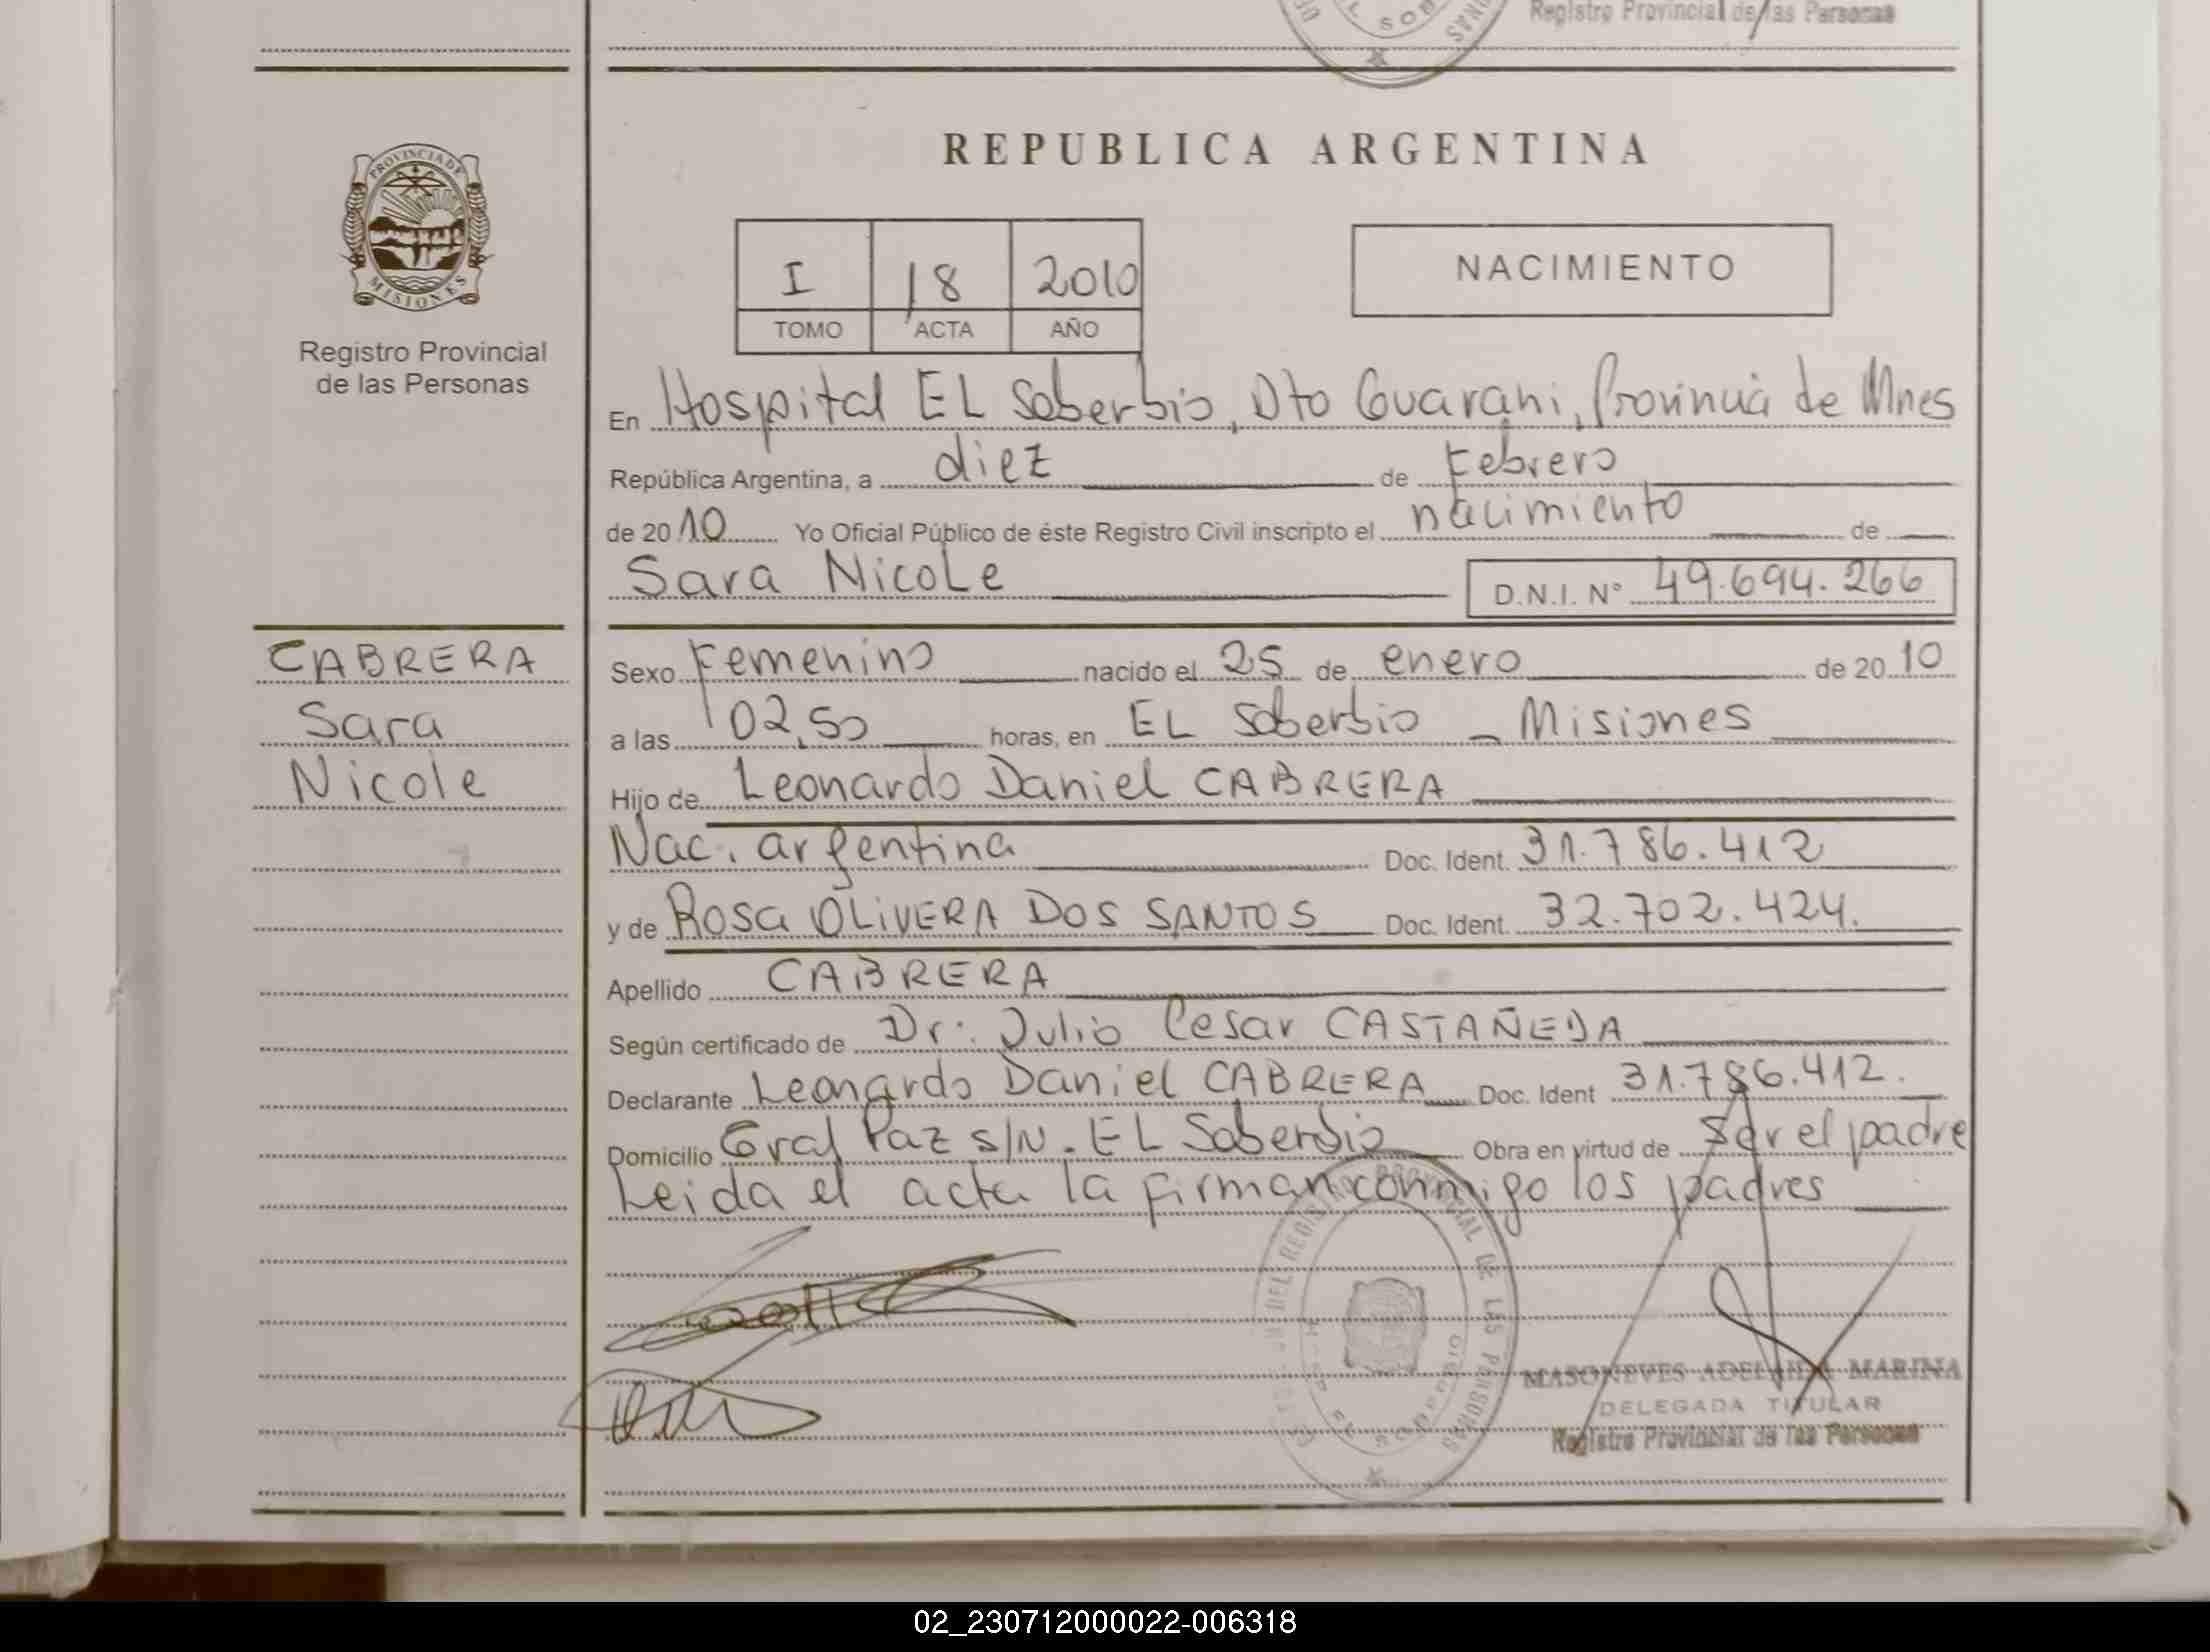 Registro Provincial de las Personas
PROVINCIA DE
MISIONES
Registro Provincial
de las Personas
REPUBLICA ARGENTINA
I 18 2010
TOMO ACTA AÑO
NACIMIENTO
En Hospital EL Soberbio, Dto Guarani, Provincia de Mnes
República Argentina, a diez de Febrero
de 2010 Yo Oficial Público de éste Registro Civil inscripto el nacimiento de
Sara Nicole D.N.I. Nº 49.694.266
CABRERA
Sara
Nicole
Sexo Femenino nacido el 25 de enero de 2010
a las 02,50 horas, en EL Soberbio - Misiones
Hijo de Leonardo Daniel CABRERA
Nac. argentina Doc. Ident. 31.786.412
y de Rosa OLIVERA DOS SANTOS Doc. Ident. 32.702.424.
Apellido CABRERA
Según certificado de Dr: Julio Cesar CASTAÑEDA
Declarante Leonardo Daniel CABRERA Doc. Ident 31.786.412.
Domicilio Gral Paz s/N. EL Soberbio Obra en virtud de ser el padre
Leida el acta la firman conmigo los padres
DEL REGISTRO PROVINCIAL DE LAS PERSONAS
MASONEVES ADELAIDA MARINA
DELEGADA TITULAR
Registro Provincial de las Personas
02_230712000022-006318